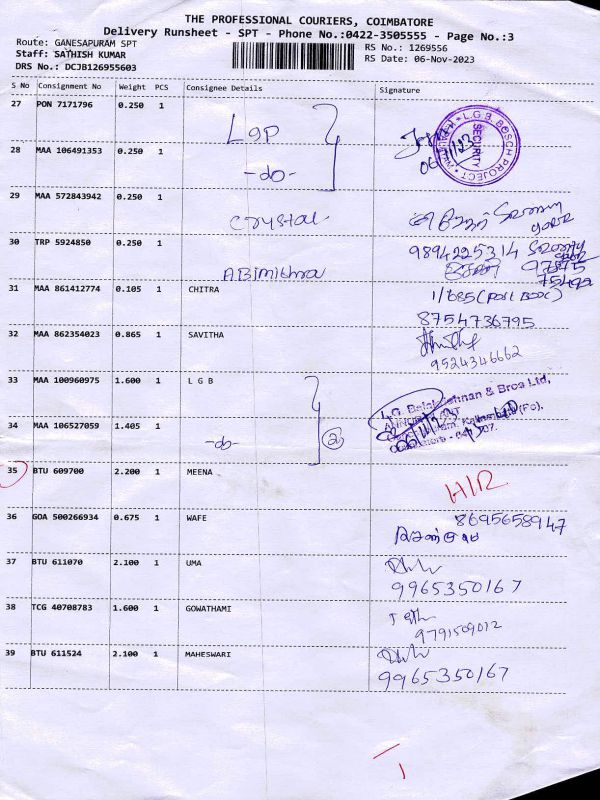 THE PROFESSIONAL COURIERS, COIMBATORE
Delivery Runsheet - SPT - Phone No.:0422-3505555 - Page No.:3
Route: GANESAPURAM SPT
RS No.: 1269556
Staff: SATHISH KUMAR
RS Date: 06-Nov-2023
DRS No.: DCJB126955603
S No Consignment No Weight PCS Consignee Details Signature
27 PON 7171796 0.250 1 Lgp
L.G.B. BOSCH PROJECT
SECURITY
28 MAA 106491353 0.250 1 -do-
29 MAA 572843942 0.250 1 Crystal
30 TRP 5924850 0.250 1 ABimithra 9894225314
31 MAA 861412774 0.105 1 CHITRA 1/685
8754736795
32 MAA 862354023 0.865 1 SAVITHA
9524346662
33 MAA 100960975 1.600 1 L G B
& Bros Ltd,
34 MAA 106527059 1.405 1 -do- 2
35 BTU 609700 2.200 1 MEENA
36 GOA 500266934 0.675 1 WAFE 8695658947
37 BTU 611070 2.100 1 UMA
9965350167
38 TCG 40708783 1.600 1 GOWATHAMI
9791509012
39 BTU 611524 2.100 1 MAHESWARI
9965350167